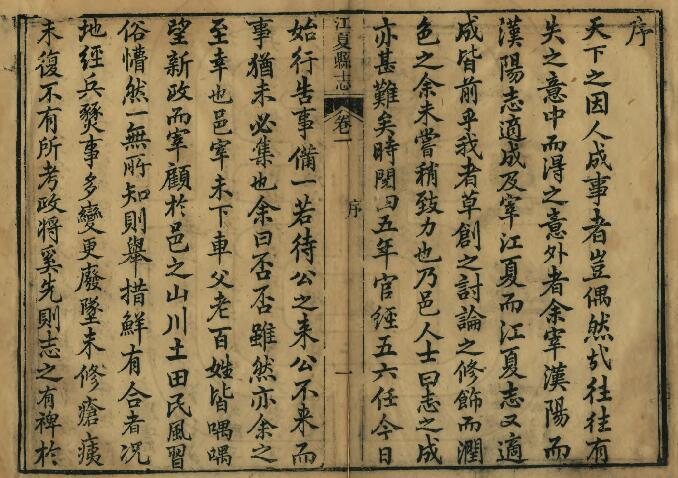 序
天下之因人成事者豈偶然哉往往有
失之意中而得之意外者余宰漢陽而
漢陽志適成及宰江夏而江夏志又適
成皆前乎我者草創之討論之修飾而潤
色之余未嘗稍致力也乃邑人士曰志之成
亦甚難矣時閱四五年官經五六任今日
江夏縣志
卷一
序
一
始行告事備一若待公之来公不来而
事猶未必集也余曰否否雖然亦余之
至幸也邑宰未下車父老百姓皆喁喁
望新政而宰顧於邑之山川土田民風習
俗懵然一無所知則舉措鮮有合者况
地經兵燹事多變更廢墜未修瘡痍
未復不有所考政將奚先則志之有裨於